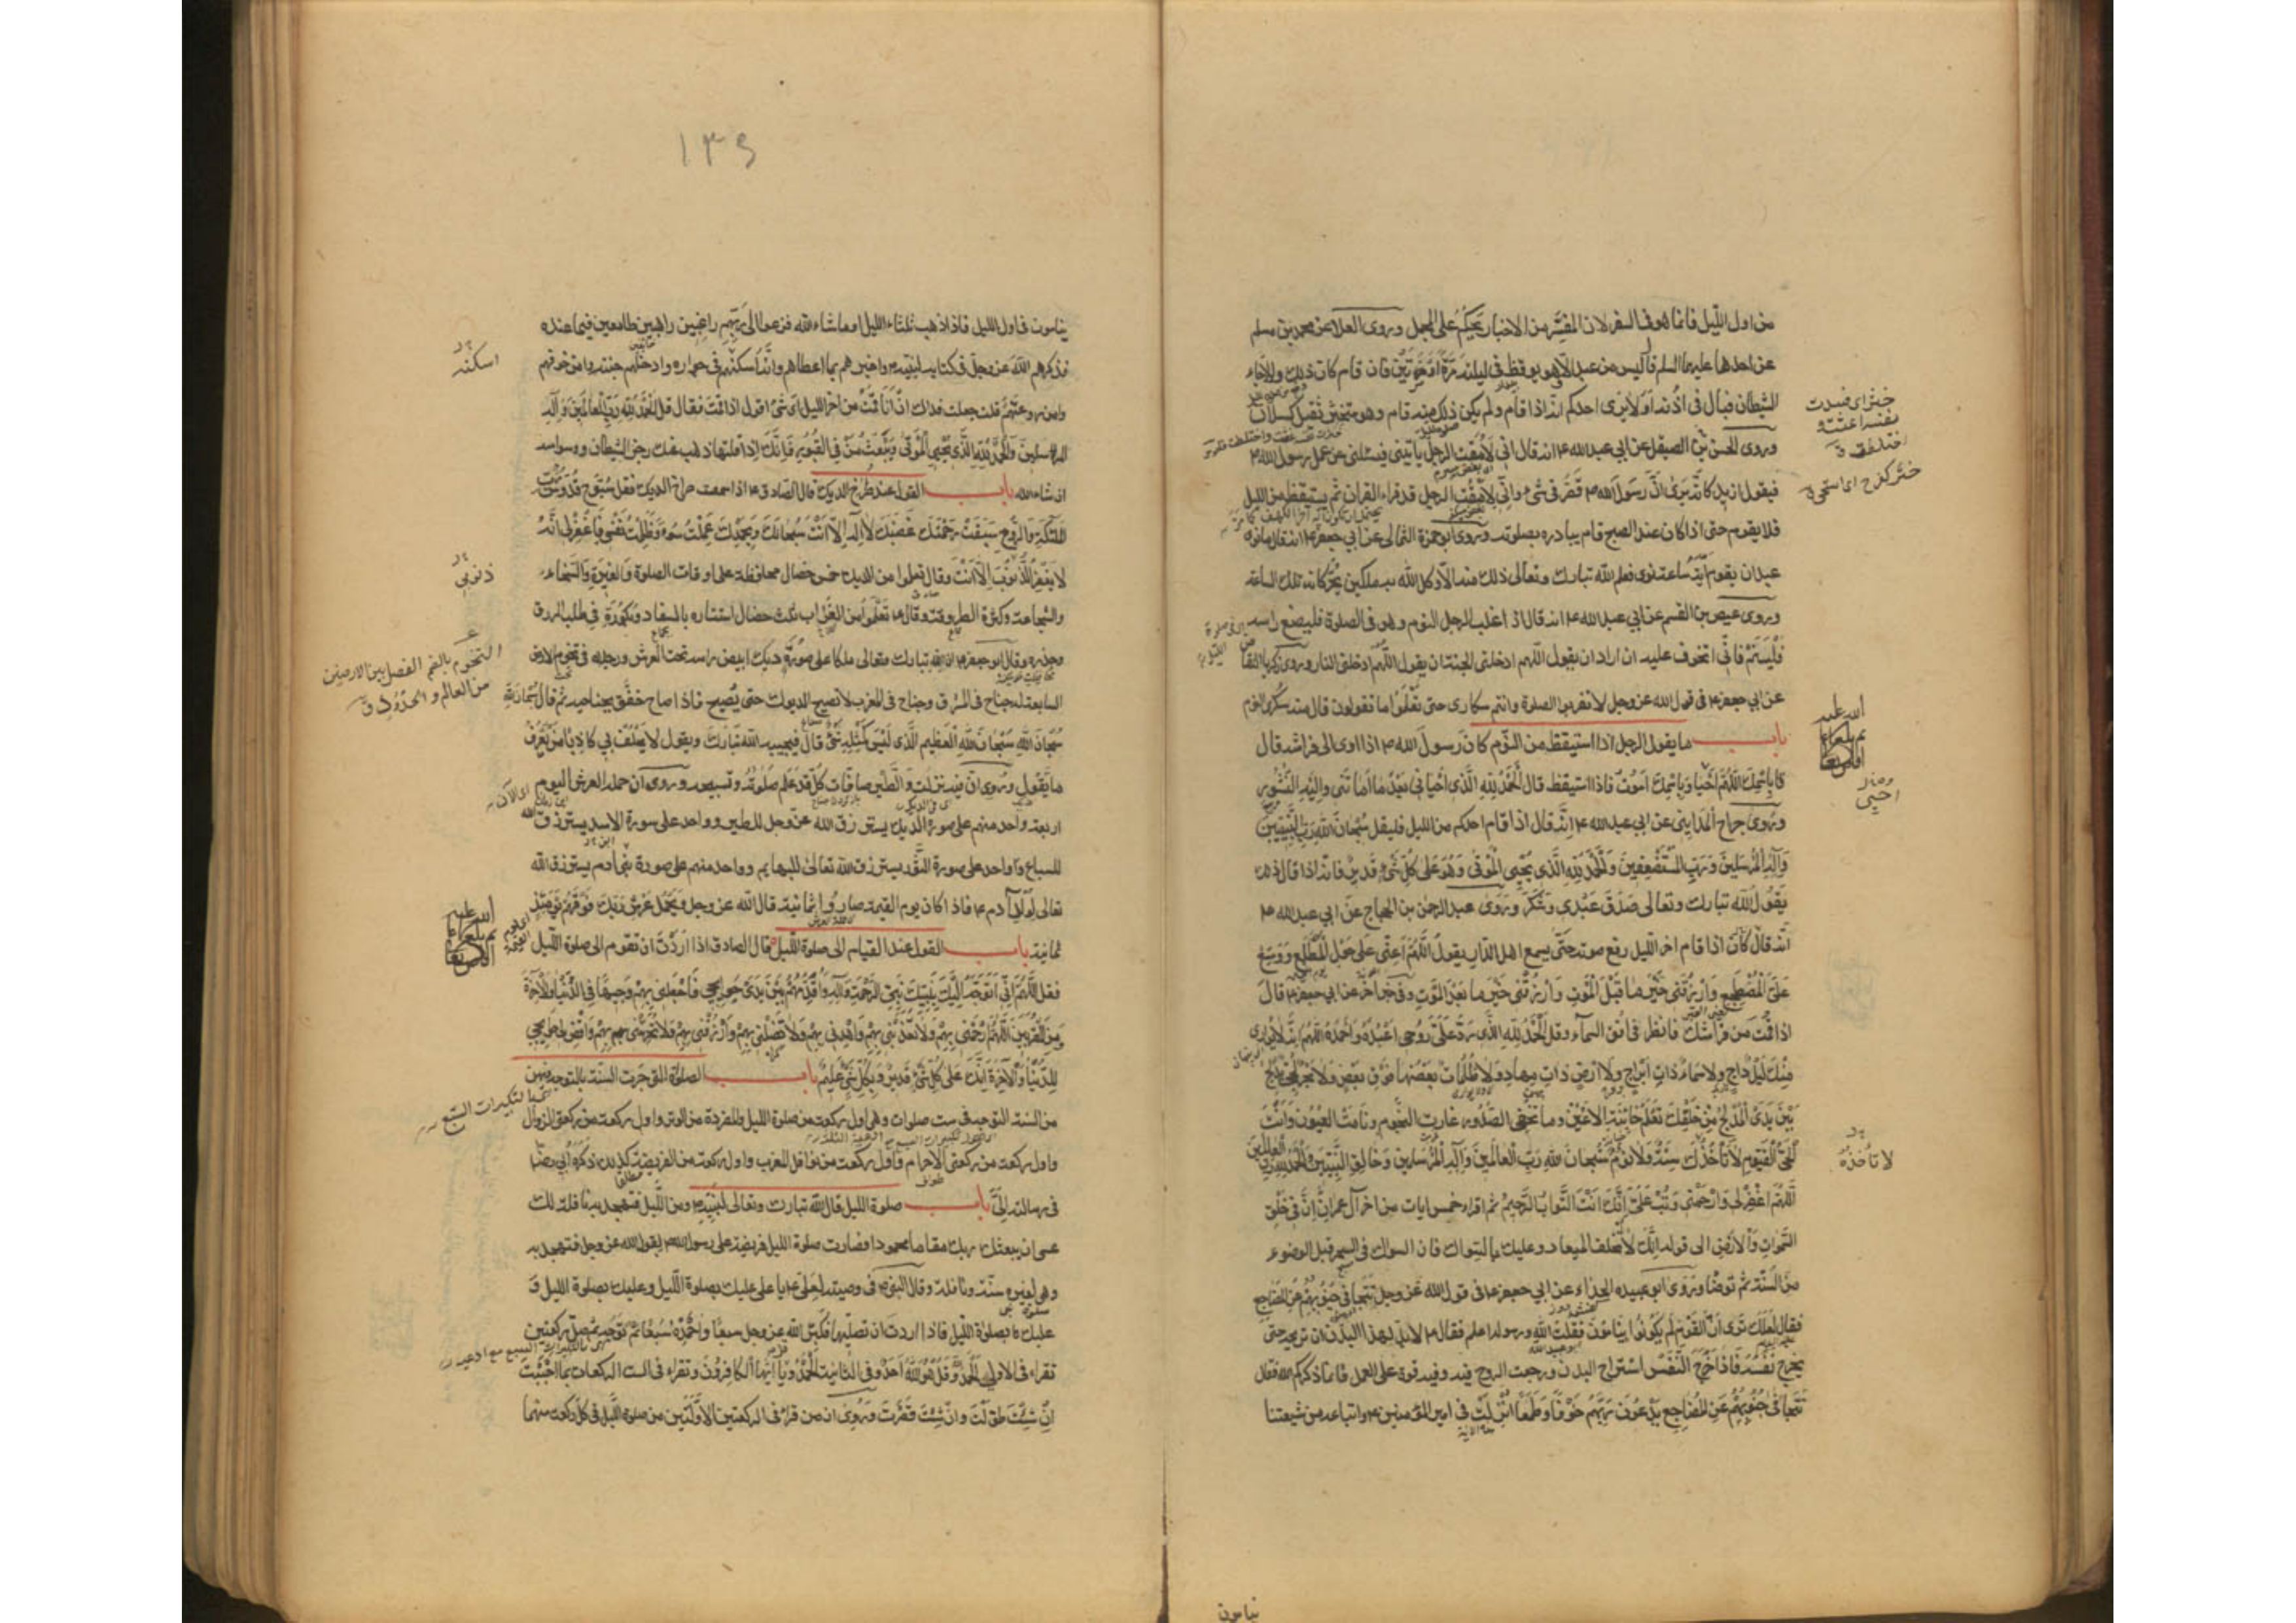 من اول الليل فانما هو فى السفر لان المفسر من الاخبار يحكم على المجمل وروى العلا عن محمد بن مسلم
عن احدهما عليهما السلم قال ليس من عبد الا وهو يوقظ فى ليلته مرة او مرتين فان قام كان ذلك والا جاء
الشيطان فبال فى اذنه اولا يرى احدكم انه اذا قام ولم يكن ذلك منه قام وهو متخثر ثقيل كسلان
وروى الحسن الصيقل عن ابي عبد الله ع انه قال انى لامقت الرجل ياتينى فيسئلنى عن عمل رسول الله ص
فيقول ازيد كانه يرى ان رسول الله ص قصر فى شئ وانى لامقت الرجل قد قراء القران ثم يستيقظ من الليل
فلا يقوم حتى اذا كان عند الصبح قام يبادره بصلوته وروى ابو حمزة الثمالى عن ابي جعفر ع انه قال ما نوى
عبد ان يقوم اية ساعة نوى فعلم الله تبارك وتعالى ذلك منه الا وكل الله به ملكين يحركانه تلك الساعة
وروى عيص بن القسم عن ابي عبد الله ع انه قال اذا غلب الرجل النوم وهو فى الصلوة فليضع راسه
فلينم فانى اتخوف عليه ان اراد ان يقول اللهم ادخلنى الجنة ان يقول اللهم ادخلنى النار وروى زكريا النقاض
عن ابي جعفر ع فى قول الله عز وجل لا تقربوا الصلوة وانتم سكارى حتى تعلموا ما تقولون قال منه سكر النوم
باب ما يقول الرجل اذا استيقظ من النوم كان رسول الله ص اذا اوى الى فراشه قال
باسمك اللهم احيا وباسمك اموت فاذا استيقظ قال الحمد لله الذى احيانى بعد ما اماتنى واليه النشور
وروى جراح المداينى عن ابي عبد الله ع انه قال اذا قام احدكم من الليل فليقل سبحان الله رب النبيين
واله المرسلين ورب المستضعفين والحمد لله الذى يحيى الموتى وهو على كل شئ قدير فانه اذا قال ذلك
يقول الله تبارك وتعالى صدق عبدى وشكر وروى عبد الرحمن بن الحجاج عن ابي عبد الله ع
انه قال كان اذا قام اخر الليل رفع صوته حتى يسمع اهل الدار يقول اللهم اعنى على هول المطلع ووسع
على المضطجع وارزقنى خير ما قبل الموت وارزقنى خير ما بعد الموت وفى خبر اخر عن ابي جعفر ع قال
اذا قمت من فراشك فانظر فى افق السماء وقل الحمد لله الذى رد على روحى اعبده واحمده اللهم انه لا يوارى
منك ليل داج ولا سماء ذات ابراج ولا ارض ذات مهاد ولا ظلمات بعضها فوق بعض ولا بحر لجى تدلج
بين يدى المدلج من خلقك تعلم خاينة الاعين وما تخفى الصدور غارت النجوم ونامت العيون وانت
الحى القيوم لا تاخذك سنة ولا نوم سبحان الله رب العالمين واله المرسلين وخالق النبيين والحمد لله رب العالمين
اللهم اغفر لى وارحمنى وتب على انك انت التواب الرحيم ثم اقراء خمس ايات من اخر آل عمران ان فى خلق
السموات والارض الى قوله انك لا تخلف الميعاد وعليك بالسواك فان السواك فى السحر قبل الوضوء
من السنة ثم توضا وروى ابو عبيده الحذاء عن ابي جعفر ع فى قول الله عز وجل تتجافى جنوبهم عن المضاجع
فقال لعلك ترى ان القوم لم يكونوا ينامون فقلت الله ورسوله اعلم فقال ع لا بد لهذا البدن ان تريحه حتى
يخرج نفسه فاذا خرج النفس استراح البدن ورجعت الروح فيه وفيه قوة على العمل فانما ذكركم الله فقال
تتجافى جنوبهم عن المضاجع يدعون ربهم خوفا وطمعا انزلت فى امير المؤمنين ع واتباعه من شيعتنا
لا تأخذه
ينامون
١٣٩
ينامون فى اول الليل فاذا ذهب ثلثاء الليل او ما شاء الله فزعوا الى ربهم راغبين راهبين طامعين فيما عنده
فذكرهم الله عز وجل فى كتابه لنبيه ص واخبرهم بما اعطاهم وانه اسكنهم فى جواره وادخلهم جنته وامن خوفهم
وامن روعتهم قلت جعلت فداك ان انا قمت من اخر الليل اى شئ اقول اذا قمت فقال قل الحمد لله رب العالمين واله
المرسلين والحمد لله الذى يحيى الموتى ويبعث من فى القبور فانك اذا قلتها ذهب عنك رجز الشيطان ووسواسه
ان شاء الله باب القول عند صراخ الديك قال الصادق ع اذا سمعت صراخ الديك فقل سبوح قدوس رب
الملئكة والروح سبقت رحمتك غضبك لا اله الا انت سبحانك وبحمدك عملت سوء وظلمت نفسى فاغفر لى انه
لا يغفر الذنوب الا انت وقال تعلموا من الديك خمس خصال محافظته على اوقات الصلوة والغيرة والسخاء
والشجاعة وكثرة الطروقة وقال ع تعلموا من الغراب ثلث خصال استتاره بالسفاد وبكوره فى طلب الرزق
وحذره وقال ابو جعفر ع ان لله تبارك وتعالى ملكا على صورة ديك ابيض راسه تحت العرش ورجلاه فى تخوم الارض
السابعة له جناح فى المشرق وجناح فى المغرب لا تصيح الديوك حتى يصيح فاذا صاح خفق بجناحيه ثم قال سبحان الله
سبحان الله سبحان الله العظيم الذى ليس كمثله شئ قال فيجيبه الله تبارك ويقول لا يحلف بى كاذبا من يعرف
ما يقول وروى ان فيه نزلت والطير صافات كل قد علم صلوته وتسبيحه وروى ان حملة العرش اليوم
اربعة واحد منهم على صورة الديك يسترزق الله عز وجل للطير وواحد على صورة الاسد يسترزق الله
للسباع وواحد على صورة الثور يسترزق الله تعالى للبهايم وواحد منهم على صورة بنى ادم يسترزق الله
تعالى لولد آدم ع فاذا كان يوم القيمة صاروا ثمانية قال الله عز وجل ويحمل عرش ربك فوقهم يومئذ
ثمانية باب القول عند القيام الى صلوة الليل قال الصادق اذا اردت ان تقوم الى صلوة الليل
فقل اللهم انى اتوجه اليك بنبيك نبى الرحمة واله واقدمهم بين يدى حوايجى فاجعلنى بهم وجيها فى الدنيا والاخرة
ومن المقربين اللهم ارحمنى بهم ولا تعذبنى بهم واهدنى بهم ولا تضلنى بهم وارزقنى بهم ولا تحرمنى بهم واقض لى حوايجى
للدنيا والاخرة انك على كل شئ قدير وبكل شئ عليم باب الصلوة التى جرت السنة بالتوجه فيهن
من السنة التوجه فى ست صلوات وهى اول ركعة من صلوة الليل والمفردة من الوتر واول ركعة من ركعتى الزوال
واول ركعة من ركعتى الاحرام واول ركعة من نوافل المغرب واول ركعة من الفريضة كذلك ذكره ابى رضه
فى رسالته الى باب صلوة الليل قال الله تبارك وتعالى لنبيه ص ومن الليل فتهجد به نافلة لك
عسى ان يبعثك ربك مقاما محمودا فصارت صلوة الليل فريضة على رسول الله ص لقول الله عز وجل فتهجد به
وهى لغيره سنة ونافلة وقال النبى ص فى وصيته لعلى ع يا على عليك بصلوة الليل وعليك بصلوة الليل و
عليك بصلوة الليل فاذا اردت ان تصليها فكبر الله عز وجل سبعا واحمده سبعا ثم توجه ثم صل ركعتين
تقراء فى الاولى الحمد وقل هو الله احد وفى الثانية الحمد وقل يا ايها الكافرون وتقراء فى الست الركعات بما احببت
ان شئت طولت وان شئت قصرت وروى ان من قراء فى الركعتين الاوليين من صلوة الليل فى كل ركعة منهما
اسكنه
ذنوبى
التخوم بالضم الفصل بين الارضين
من المعالم والحدود ق